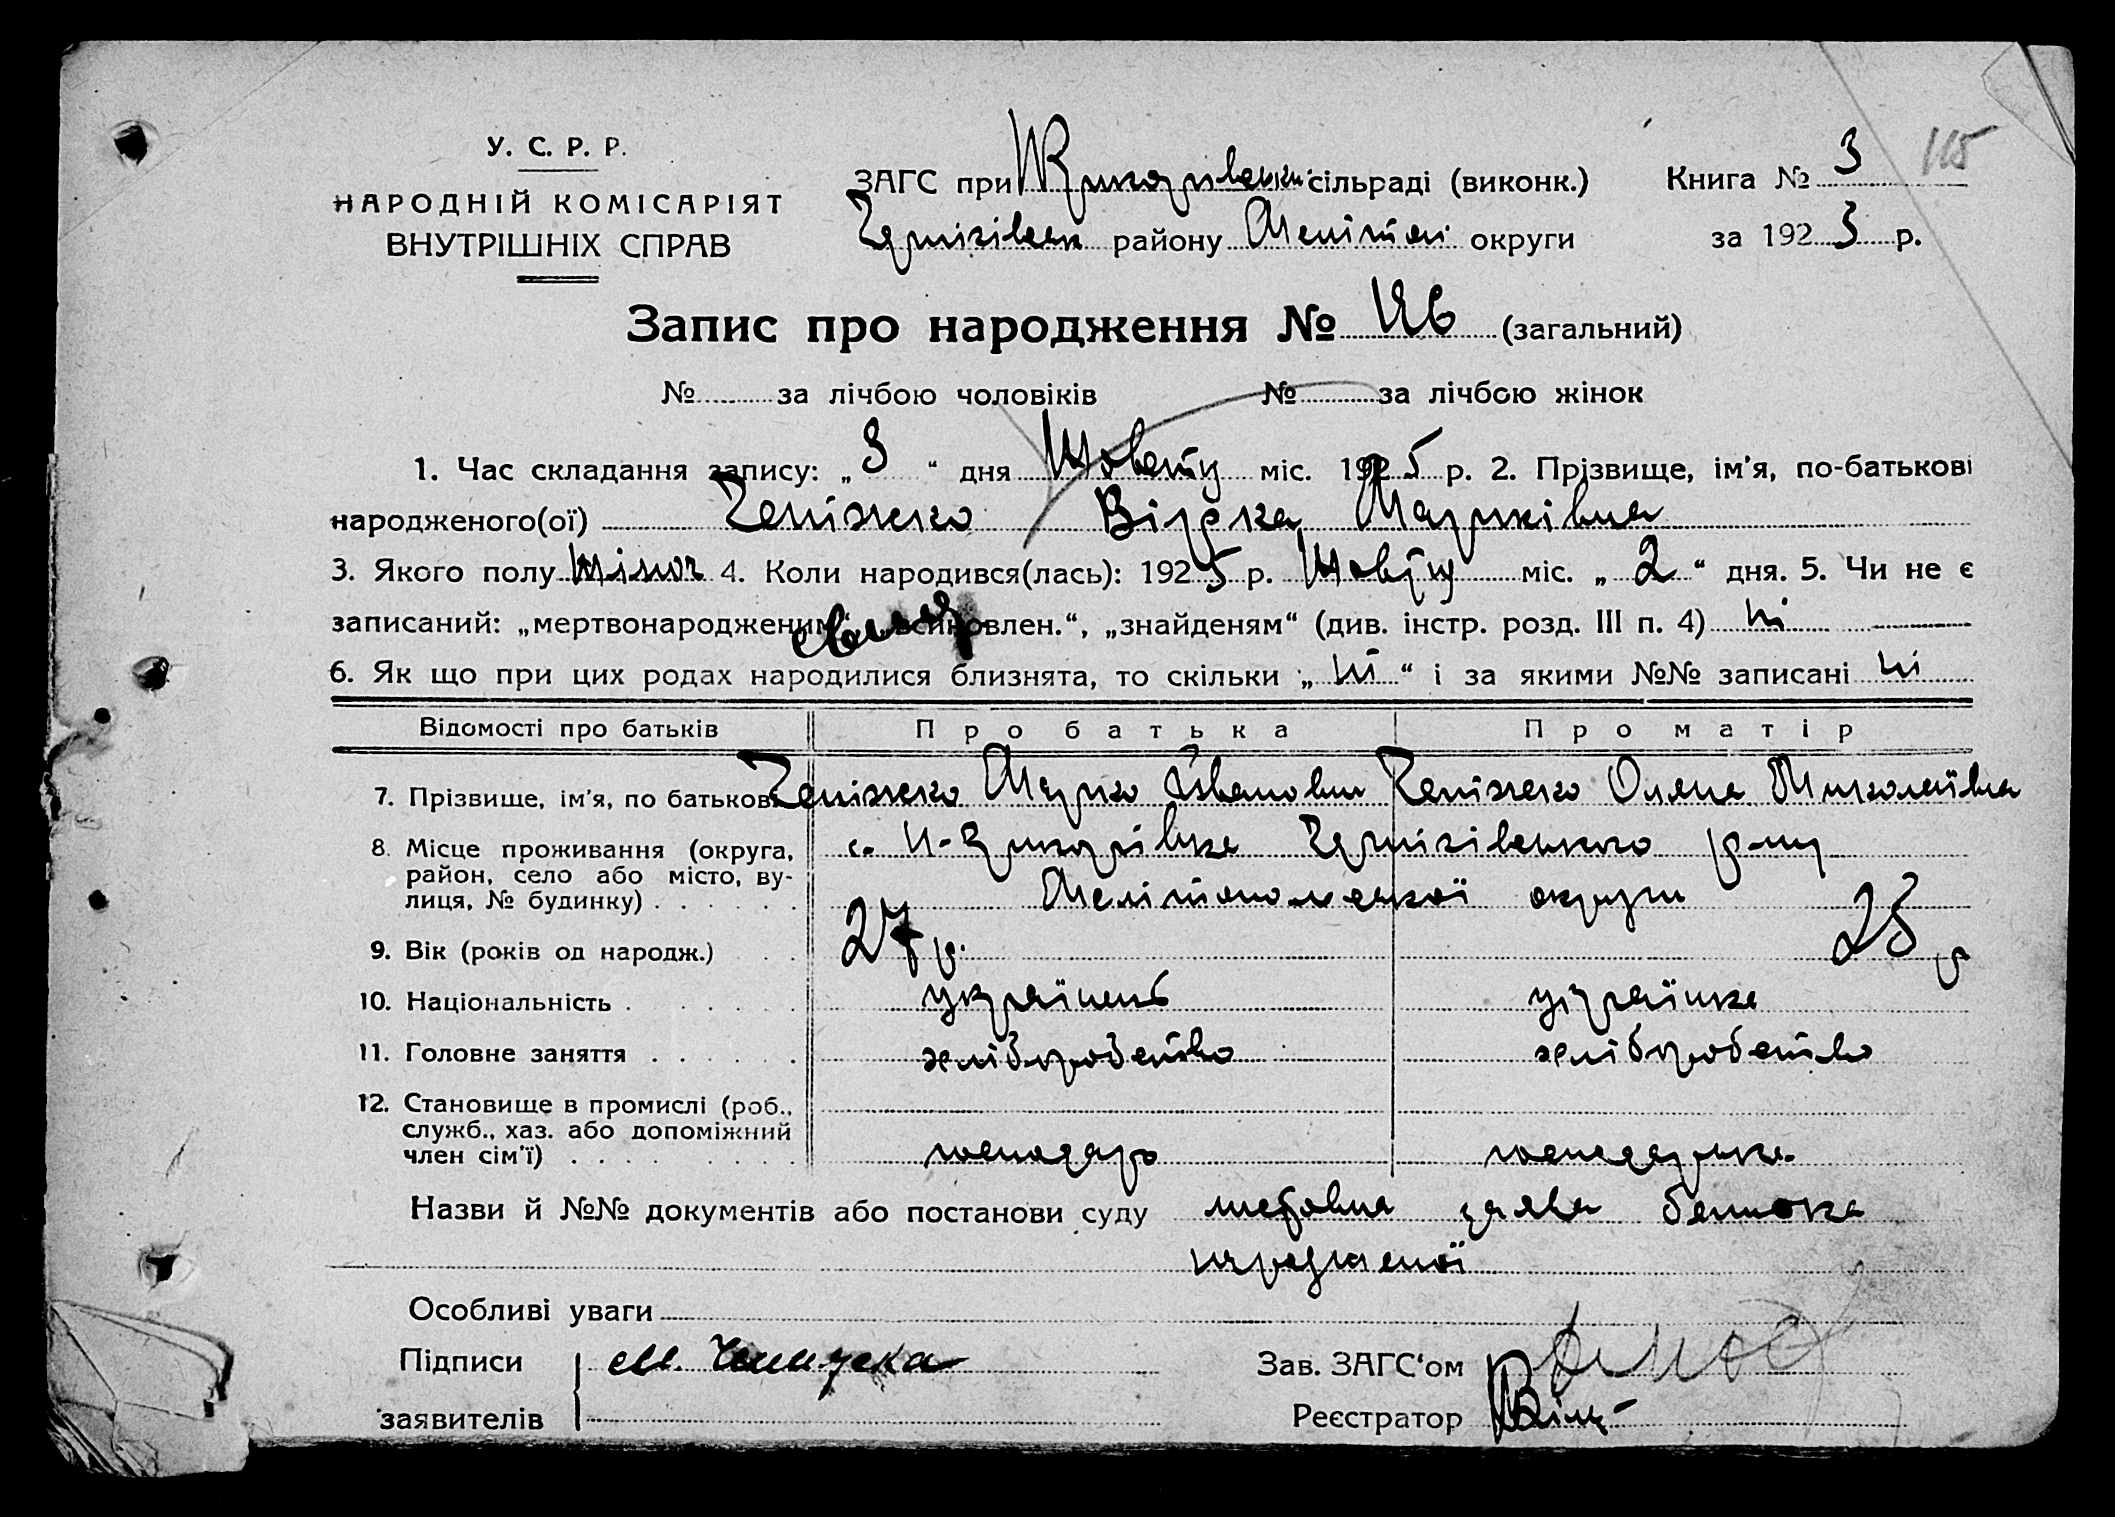 У. С. Р. Р.
НАРОДНІЙ КОМІСАРІЯТ
ВНУТРІШНІХ СПРАВ
ЗАГС при сільраді (виконк.)
району Мелітоп округи
Книга № 3
115
за 1923 р.
Запис про народження № (загальний)
№ за лічбою чоловіків № за лічбою жінок
1. Час складання запису: „3“ дня Жовтня міс. 1925 р. 2. Прізвище, ім'я, по-батькові
народженого(ої) Марківна
3. Якого полу жіноч 4. Коли народився(лась): 1925 р. міс. „2“ дня. 5. Чи не є
записаний: „мертвонародженим“, „всиновлен.“, „знайденям“ (див. інстр. розд. III п. 4) ні
6. Як що при цих родах народилися близнята, то скільки „ні“ і за якими №№ записані ні
Відомості про батьків Про батька Про матір
7. Прізвище, ім'я, по батькові Марко Іванович Миколаївна
8. Місце проживання (округа, район, село або місто, вулиця, № будинку) с. Чернігівського р-ну
Мелітопольської округи
9. Вік (років од народж.) 27 р. 25 р
10. Національність українець українка
11. Головне заняття хліборобство хліборобство
12. Становище в промислі (роб., служб., хаз. або допоміжний член сім'ї) господарь господарка
Назви й №№ документів або постанови суду заява батька
народженої
Особливі уваги
Підписи
заявителів
Зав. ЗАГС'ом
Реєстратор